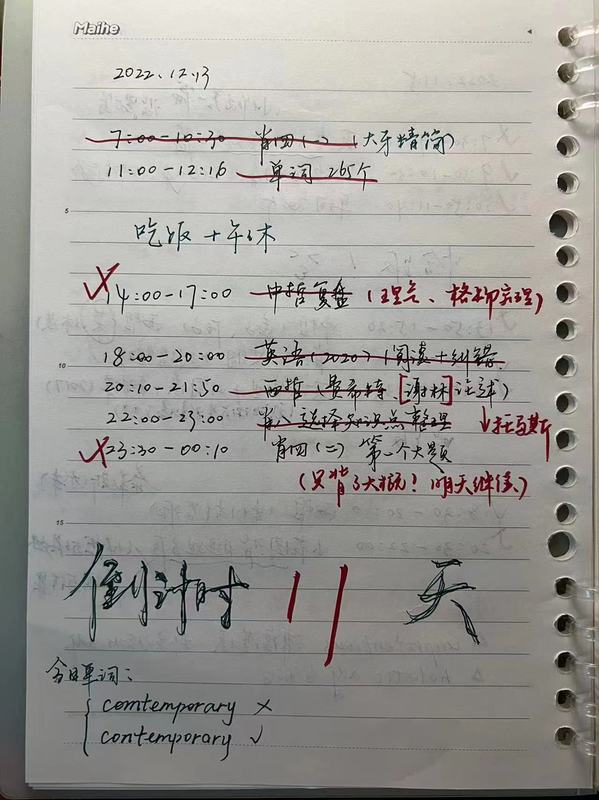 Maihe
2022.12.13
7:00-10:30 肖四(一) (大牙精简)
11:00-12:16 单词 265个
5
吃饭+午休
14:00-17:00 中哲复盘 (理气、格物穷理)
10
18:00-20:00 英语(2020) 阅读+纠错
20:10-21:50 西哲 (费希特 [谢林]
22:00-23:00 肖八选择知识点整理
23:30-00:10 肖四(二) 第一个大题
(只背了大概! 明天继续)
15
倒计时 11 天
今日单词:
comtemporary ×
contemporary √